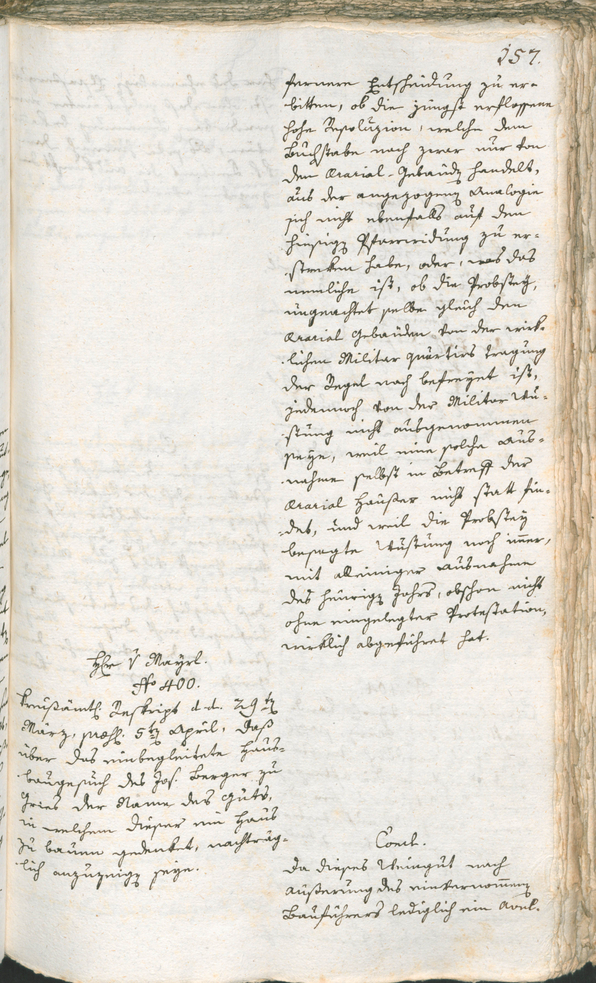 157.
fernere Entscheidung zu er-
bitten, ob die jüngst erflossene
hohe Resoluzion, welche dem
Buchstabe nach zwar nur von
den Ararial-Gebäudn handelt,
aus der angezogenen Analogie
sich nicht ebenfalls auf den
hiesigen zu er-
streken habe, oder, was das
nemliche ist, ob die Probstey,
ungeachtet selbe gleich den
Ararial Gebäuden von der wirk-
lichen Militar quartiers tragung
der Regel nach befreyet ist,
jedennoch von der Militar Wu-
stung nicht ausgenommen
seye, weil eine solche Aus-
nahme selbst in Betreff der
Ararial Häuser nicht statt fin-
det, und weil die Probstey
besagte Wustung noch imer,
mit alleiniger Ausnahme
des heurigen Jahrs, obschon nicht
ohne eingelegter Protestation,
wirklich abgeführet hat.
Hr v Mayrl.
No 400.
Kreisämtl. Reskript d. d. 29tn
März, præs. 5tn April, daß
über das einbegleitete Haus-
baugesuch des Jos. Berger zu
Gries der Name des Guts,
in welchem dieser ein Haus
zu bauen gedenket, nachträg-
lich anzuzeigen seye.
Concl.
Da dieses Weingut nach
Äußerung des einvernommenen
Bauführers lediglich ein